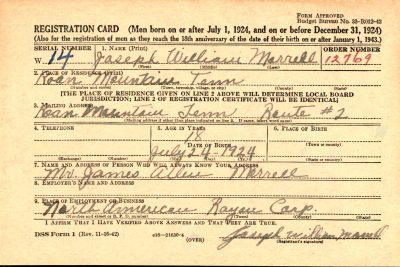 FORM APPROVED
Budget Bureau No. 33-R012-42
REGISTRATION CARD (Men born on or after July 1, 1924, and on or before December 31, 1924)
(Also for the registration of men as they reach the 18th anniversary of the date of their birth on or after January 1, 1943.)
SERIAL NUMBER 1. NAME (Print) ORDER NUMBER
W 14 Joseph William Morrell 12769
(First) (Middle) (Last)
2. PLACE OF RESIDENCE (Print)
Roan Mountain Tenn
(Number and street) (Town, township, village, or city) (County) (State)
[THE PLACE OF RESIDENCE GIVEN ON LINE 2 ABOVE WILL DETERMINE LOCAL BOARD
JURISDICTION; LINE 2 OF REGISTRATION CERTIFICATE WILL BE IDENTICAL]
3. MAILING ADDRESS
Roan Mountain Tenn Route # 2
[Mailing address if other than place indicated on line 2. If same, insert word same]
4. TELEPHONE 5. AGE IN YEARS 6. PLACE OF BIRTH
18
DATE OF BIRTH (Town or county)
July 24 1924
(Exchange) (Number) (Mo.) (Day) (Yr.) (State or country)
7. NAME AND ADDRESS OF PERSON WHO WILL ALWAYS KNOW YOUR ADDRESS
Mr. James Allen Morrell
8. EMPLOYER'S NAME AND ADDRESS
9. PLACE OF EMPLOYMENT OR BUSINESS
North American Rayon Corp.
(Number and street or R. F. D. number) (Town) (County) (State)
I AFFIRM THAT I HAVE VERIFIED ABOVE ANSWERS AND THAT THEY ARE TRUE.
DSS Form 1 (Rev. 11-16-42) 16—21630-4 Joseph William Morrell
(OVER) (Registrant's signature)